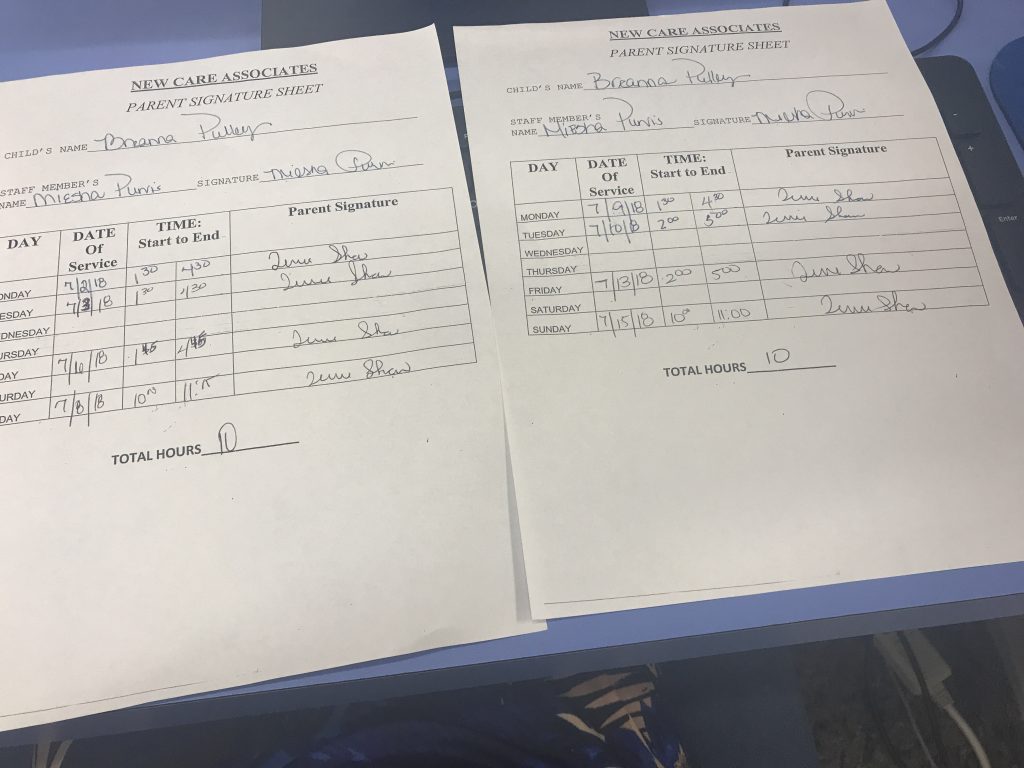 NEW CARE ASSOCIATES
PARENT SIGNATURE SHEET
CHILD'S NAME Breanna Pulley
STAFF MEMBER'S
NAME Miesha Purvis SIGNATURE Miesha
DAY DATE Of Service TIME: Start to End Parent Signature
ONDAY 7/2/18 1 30 4 30 Shaw
ESDAY 7/3/18 1 30 4 30 Shaw
DNESDAY
URSDAY
DAY 7/6/18 1 45 4 45 Shaw
URDAY
DAY 7/8/18 10 Shaw
TOTAL HOURS 10
NEW CARE ASSOCIATES
PARENT SIGNATURE SHEET
CHILD'S NAME Breanna Pulley
STAFF MEMBER'S
NAME Miesha Purvis SIGNATURE Miesha
DAY DATE Of Service TIME: Start to End Parent Signature
MONDAY 7/9/18 1 30 4 30 Shaw
TUESDAY 7/10/18 2 00 5 00 Shaw
WEDNESDAY
THURSDAY
FRIDAY 7/13/18 2 00 5 00 Shaw
SATURDAY
SUNDAY 7/15/18 10 11:00 Shaw
TOTAL HOURS 10
Enter